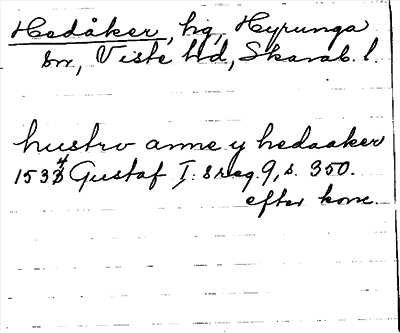 Hedåker, hg, Hyrunga
sn, Viste hd, Skarab. l.
hustro anne y hedaaker
1534 Gustaf I: s reg. 9, s. 350.
efter konc.